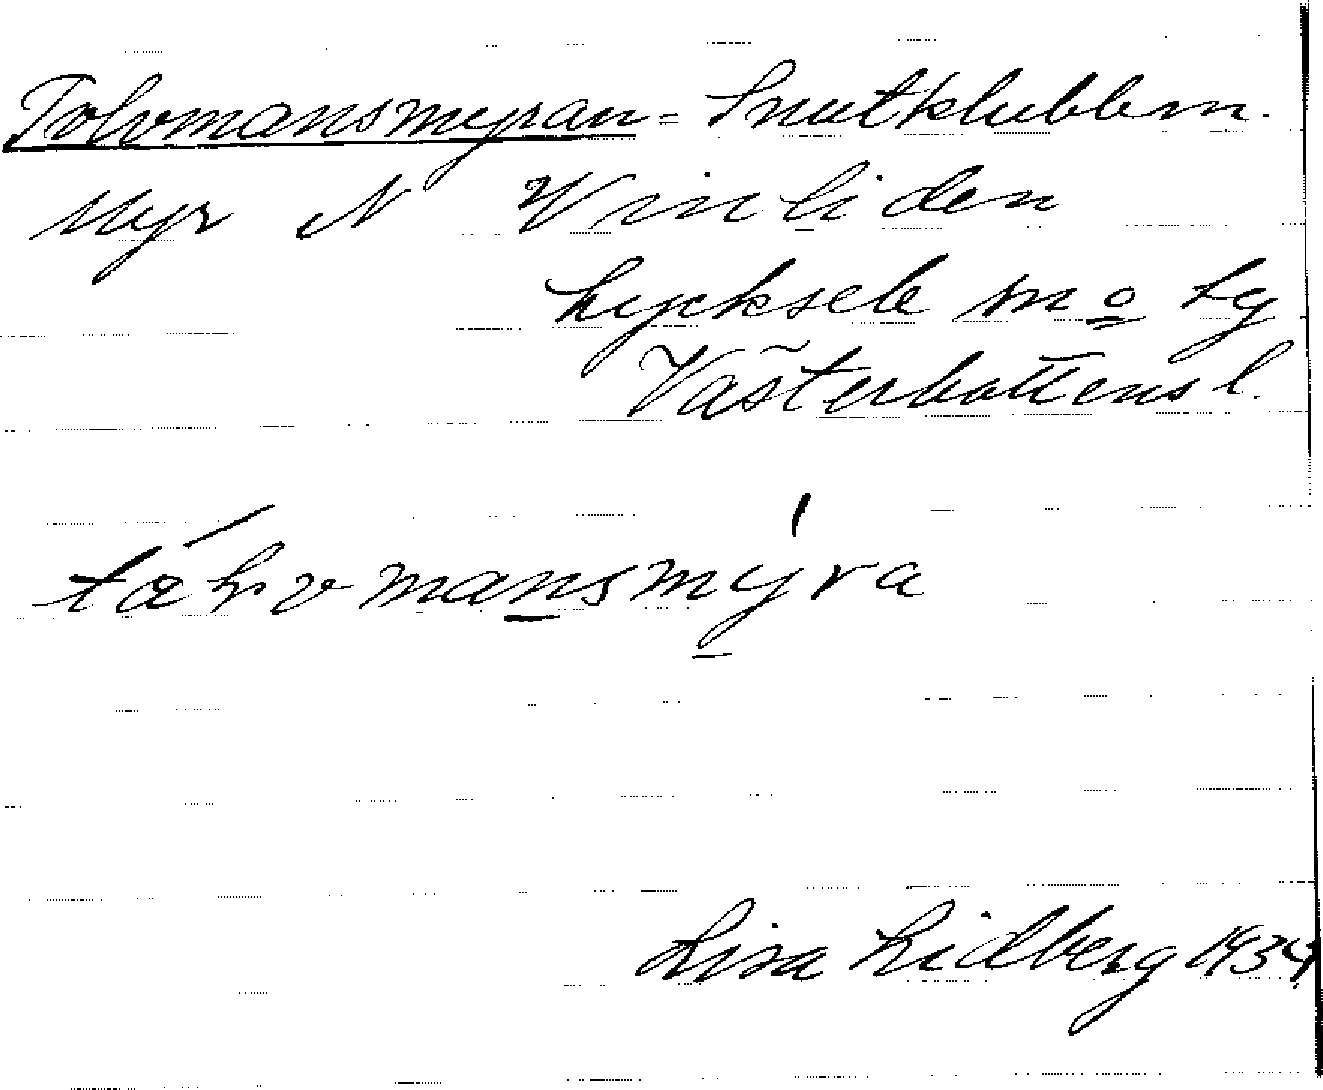 Tolvmansmyran = Snutklubben.
Myr N Vinliden
Lycksele m o Lg
Västerbottens l.
tæ̀ḷvmansmýra
Lisa Lidberg 1934